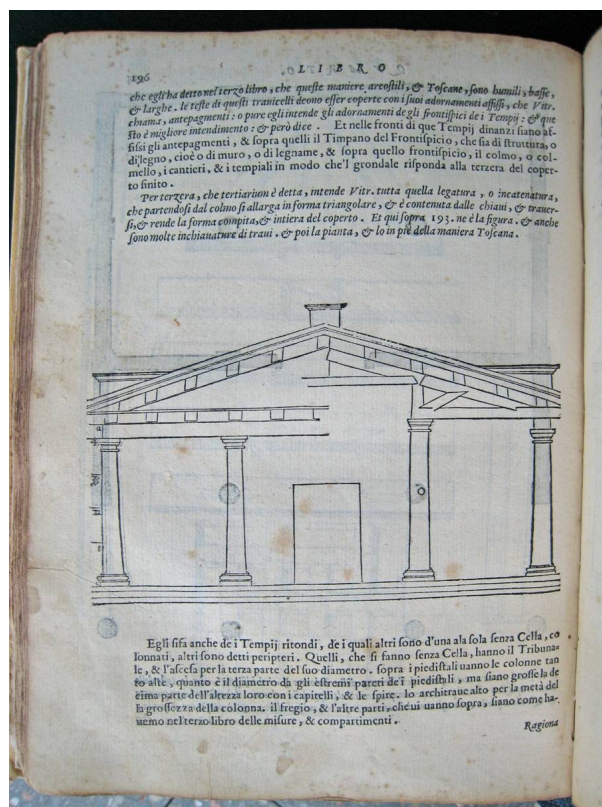 196
LIBRO
che egli ha detto nel terzo libro, che queste maniere areostili, & Toscane, sono humili, basse,
& larghe. le teste di questi tranicelli deono esser coperte con i suoi adornamenti affissi, che Vitr.
chiama, antepagmenti: o pure egli intende gli adornamenti de gli frontispici de i Tempij: & que
sto è migliore intendimento: & però dice. Et nelle fronti di que Tempij dinanzi siano af-
fissi gli antepagmenti, & sopra quelli il Timpano del Frontispicio, che sia di struttura, o
di legno, cioè o di muro, o di legname, & sopra quello frontispicio, il colmo, o col-
mello, i cantieri, & i templali in modo che'l grondale risponda alla terzera del coper-
to finito.
Per terzera, che tertiarium è detta, intende Vitr. tutta quella legatura, o incatenatura,
che partendosi dal colmo si allarga in forma triangolare, & è contenuta dalle chiaui, & trauer-
si, & rende la forma compita, & intiera del coperto. Et qui sopra 193. ne è la figura. & anche
sono molte inchianature di traui. & poi la pianta, & lo in piè della maniera Toscana.
Egli si fa anche de i Tempij ritondi, de i quali altri sono d'una ala sola senza Cella, co
lonnati, altri sono detti peripteri. Quelli, che si fanno senza Cella, hanno il Tribuna-
le, & l'ascesa per la terza parte del suo diametro. sopra i piedistali uanno le colonne tan
to alte, quanto è il diametro da gli estremi pareti de i piedistali, ma siano grosse la de
cima parte dell'altezza loro con i capitelli, & le spire. lo architraue alto per la metà del
la grossezza della colonna. il fregio, & l'altre parti, che ui uanno sopra, siano come ha-
uemo nel terzo libro delle misure, & compartimenti.
Ragiona